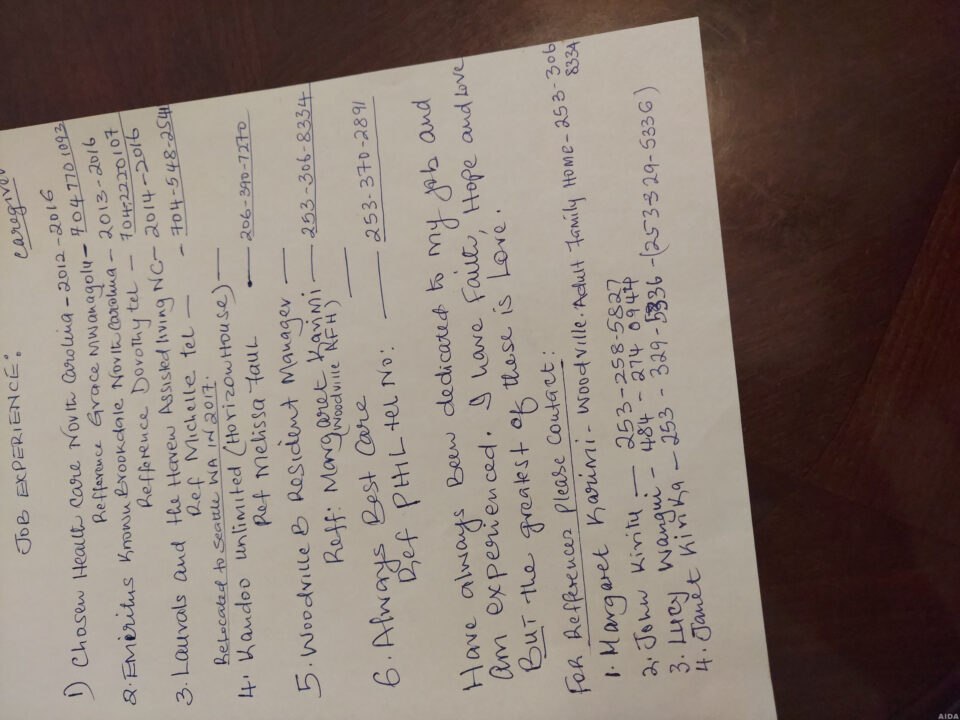 caregiver
JOB EXPERIENCE:
1) Chosen Health Care North Carolina - 2012-2016
Refference Grace Mwanagolu - 704 770 1093
2. Emeritus Known Brookdale North Carolina - 2013-2016
Refference Dorothy tel - 704,222 0107
3. Laurals and the Haven Assisted living NC - 2014-2016
Ref Michelle tel - - 704-548-2541
Relocated to Seattle WA IN 2017.
4. Kandoo Unlimited (Horizon House) -
Ref Melissa - - 206-390-7270
5. Woodville B Resident Manager -
Reff: Margaret Karimi - 253-306-8334
(Woodville AFH)
6. Always Best Care
Ref PHIL tel No: - 253-370-2891
Have always been dedicated to my job and
am experienced. I have Faith, Hope and Love
But the greatest of these is Love.
For Refferences Please Contact:
1. Margaret Karimi - Woodville. Adult Family Home - 253-306
8334
2. John Kiritu - 253-258-5827
3. Lucy Wangui - 484-274 0944
4. Janet Kirika - 253-329-5336 - (253-329-5336)
AIDA